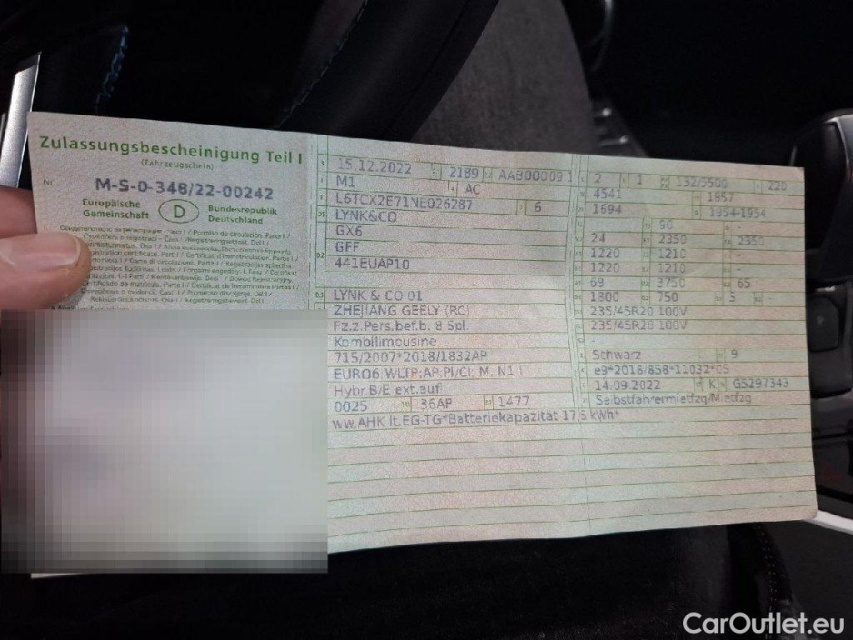 Zulassungsbescheinigung Teil I
(Fahrzeugschein)
Nr. M-S-0-348/22-00242
Europäische Gemeinschaft D Bundesrepublik Deutschland
15.12.2022 2189 AAB00009 1
M1 AC
L6TCX2E71NE026287 6
LYNK&CO
GX6
GFF
441EUAP10
LYNK & CO 01
ZHEJIANG GEELY (RC)
Fz.z.Pers.bef.b. 8 Spl.
Kombilimousine
715/2007*2018/1832AP
EURO6;WLTP;AP;PI/CI; M, N1 I
Hybr.B/E ext.aufl
0025 36AP 1477
ww.AHK lt.EG-TG*Batteriekapazität 17,6 kWh*
2 1 132/5500 220
4541 1857
1694 1954-1954
90
24 2350 2350
1220 1210
1220 1210 -
69 3750 65
1800 750 5 -
235/45R20 100V
235/45R20 100V
Schwarz 9
e9*2018/858*11032*05
14.09.2022 K GS297343
Selbstfahrermietfzg/Mietfzg
CarOutlet.eu